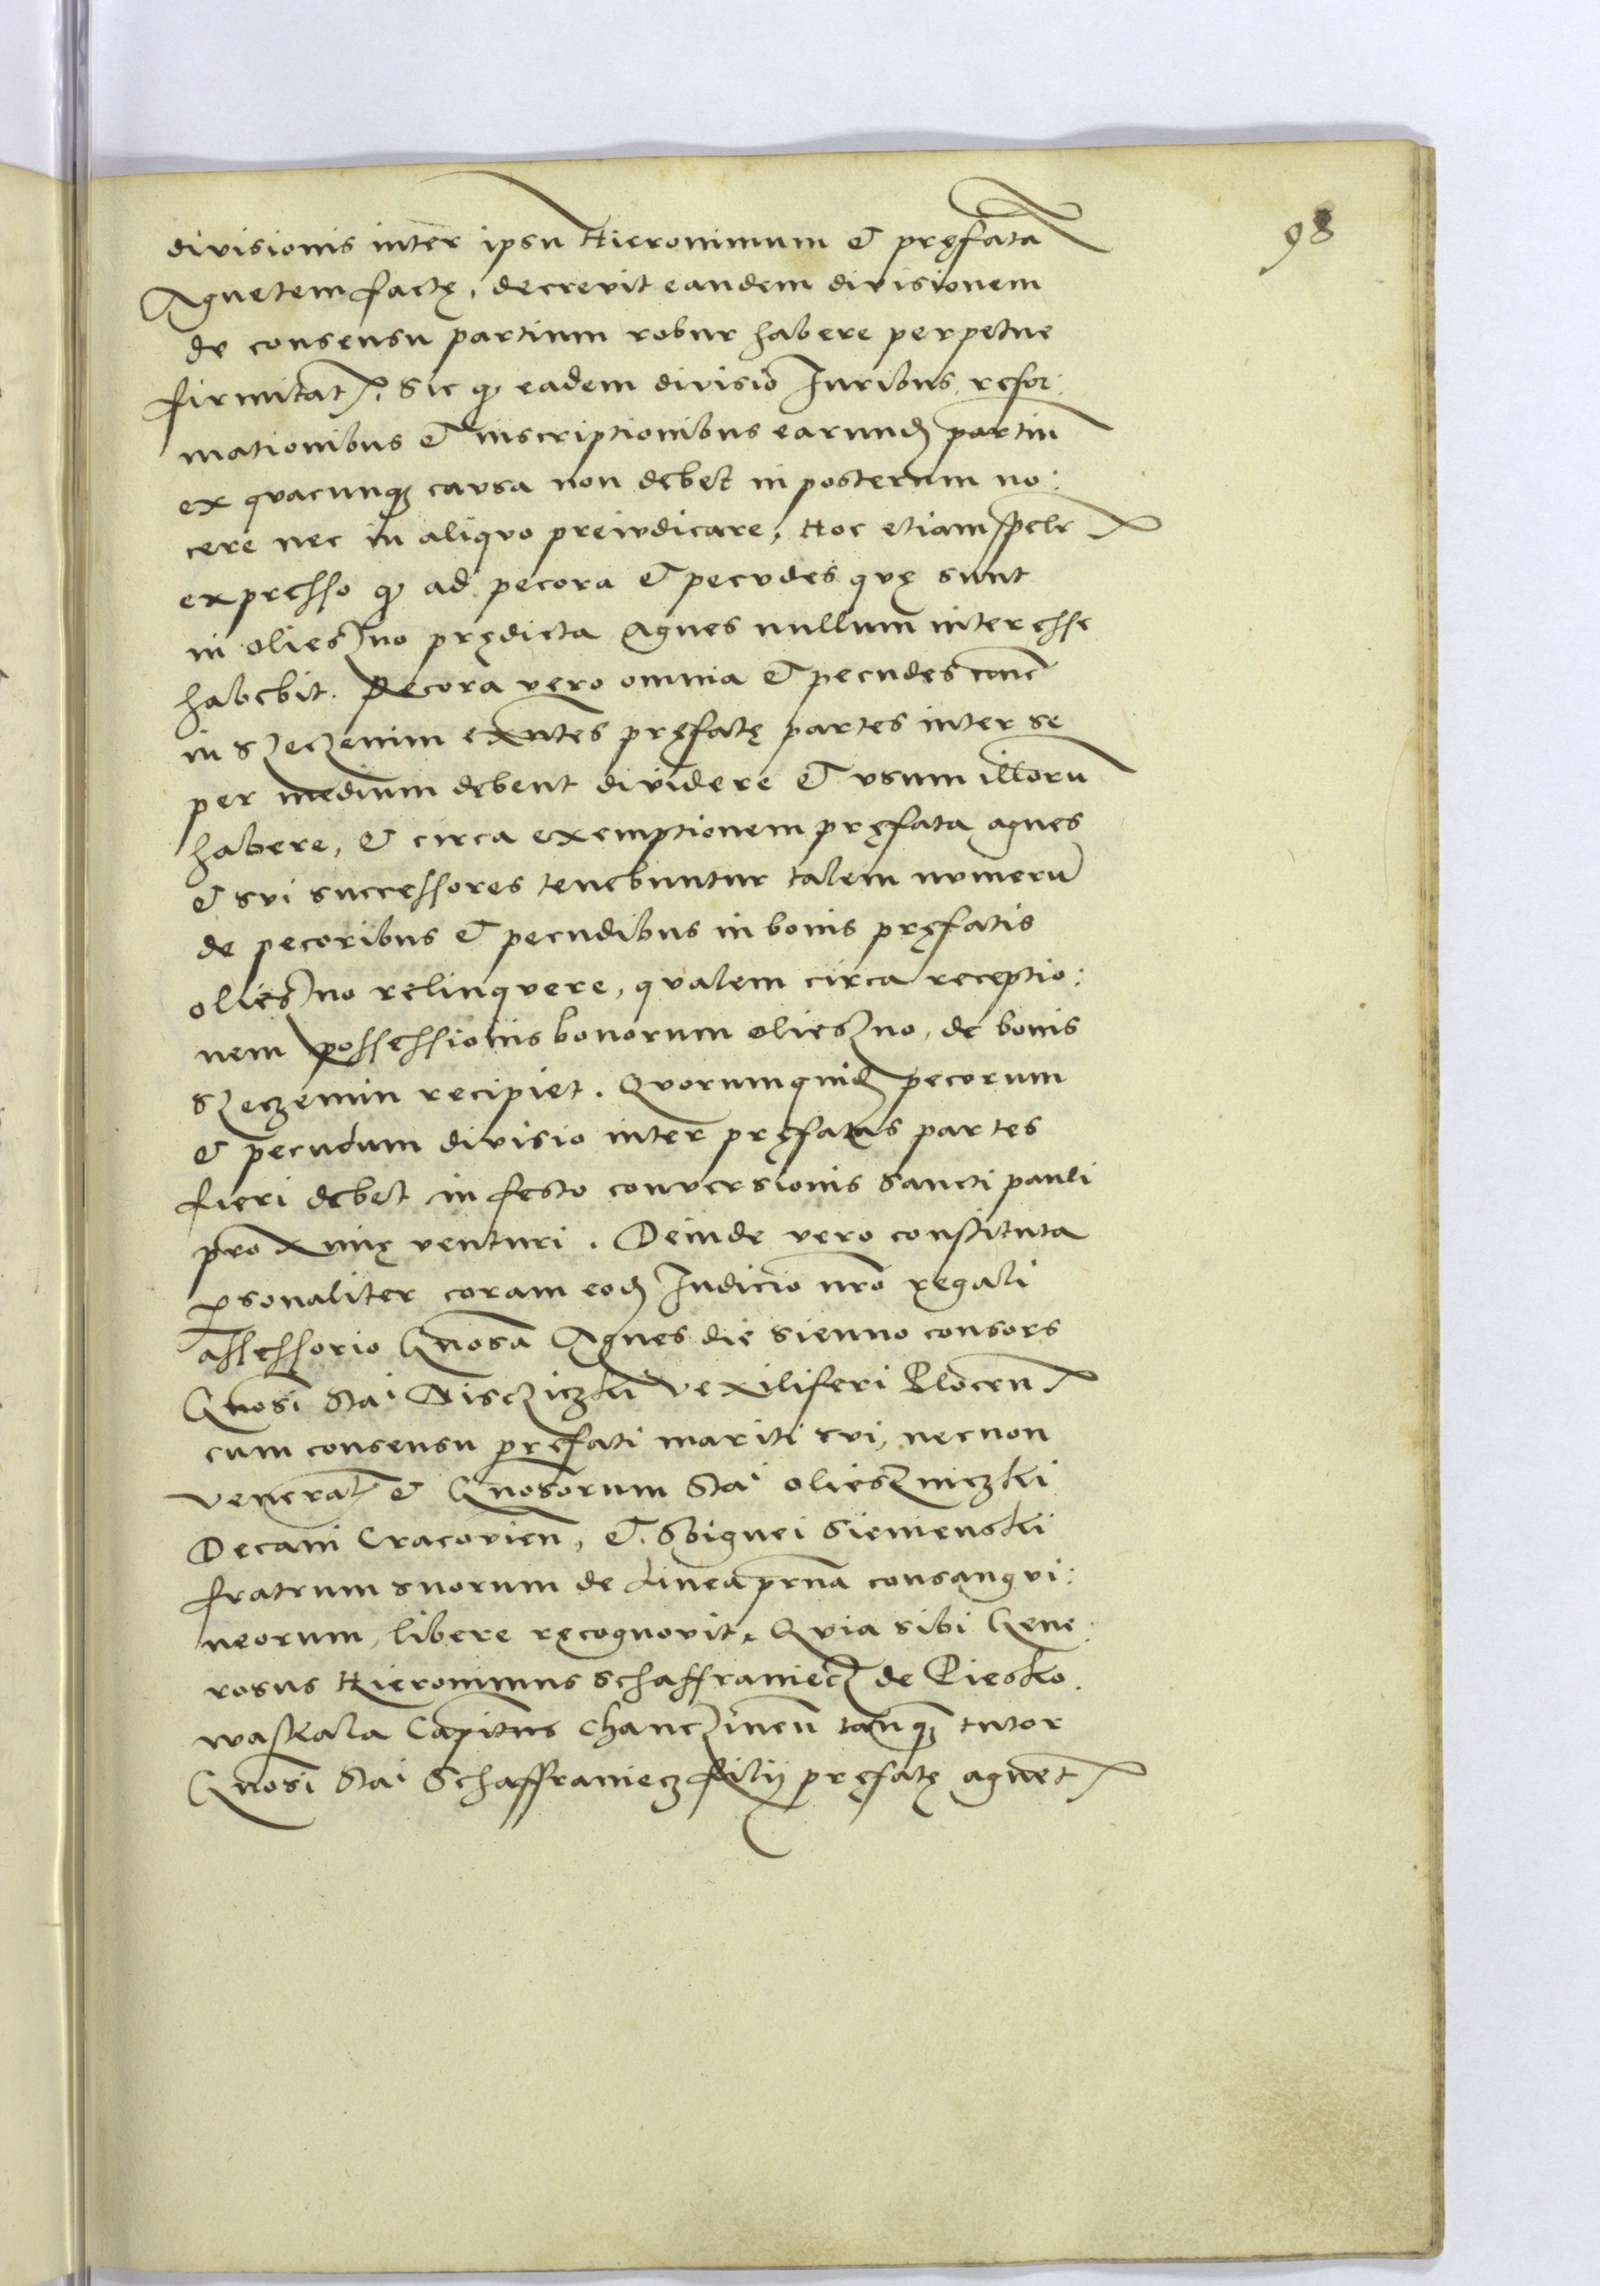 98
divisionis inter ipsu Hieronimum & pręfata
Agnetem factę, decrevit eandem divisionem
de consensu partium robur habere perpetue
firmitat. Sic q eadem divisio Iuribus, refor:
mationibus & inscriptionibus earund partiu
ex quacunq causa non debet in posterum no:
cere nec in aliquo preiudicare, Hoc etiam spclr
expresso q ad pecora & pecudes quę sunt
in Oliesno prędicta Agnes nullum interesse
habebit. Pecora vero omnia & pecudes
in Szeczemin exntes pręfatę partes inter se
per medium debent dividere & usum illoru
habere, & circa exemptionem pręfata agnes
& sui successores tenebuntur talem numeru
de pecoribus & pecudibus in bonis pręfatis
oliesno relinquere, qualem circa receptio:
nem possessionis bonorum oliesno, de bonis
Szeczemin recipiet. Quorumquid pecorum
& pecudum divisio inter pręfatas partes
fieri debet in festo conversionis Sancti pauli
proximę venturi. Deinde vero constituta
psonaliter coram eod Iudicio nro regali
assessorio Gnosa Agnes de Sienno consors
Gnosi Stai vexiliferi Plocen
cum consensu pręfati mariti sui, necnon
venerat & Gnosorum Stai Oliesniczki
Decani Cracovien, & Sbignei Siemenski
fratrum suorum de Linea prna consangui:
neorum, libere recognovit. Quia sibi Gene:
rosus Hieronimus Schaffraniecz de Piesko
waskala Capitus Chanczinen tanq tutor
Gnosi Stai Schaffraniecz filij pręfatę agnet